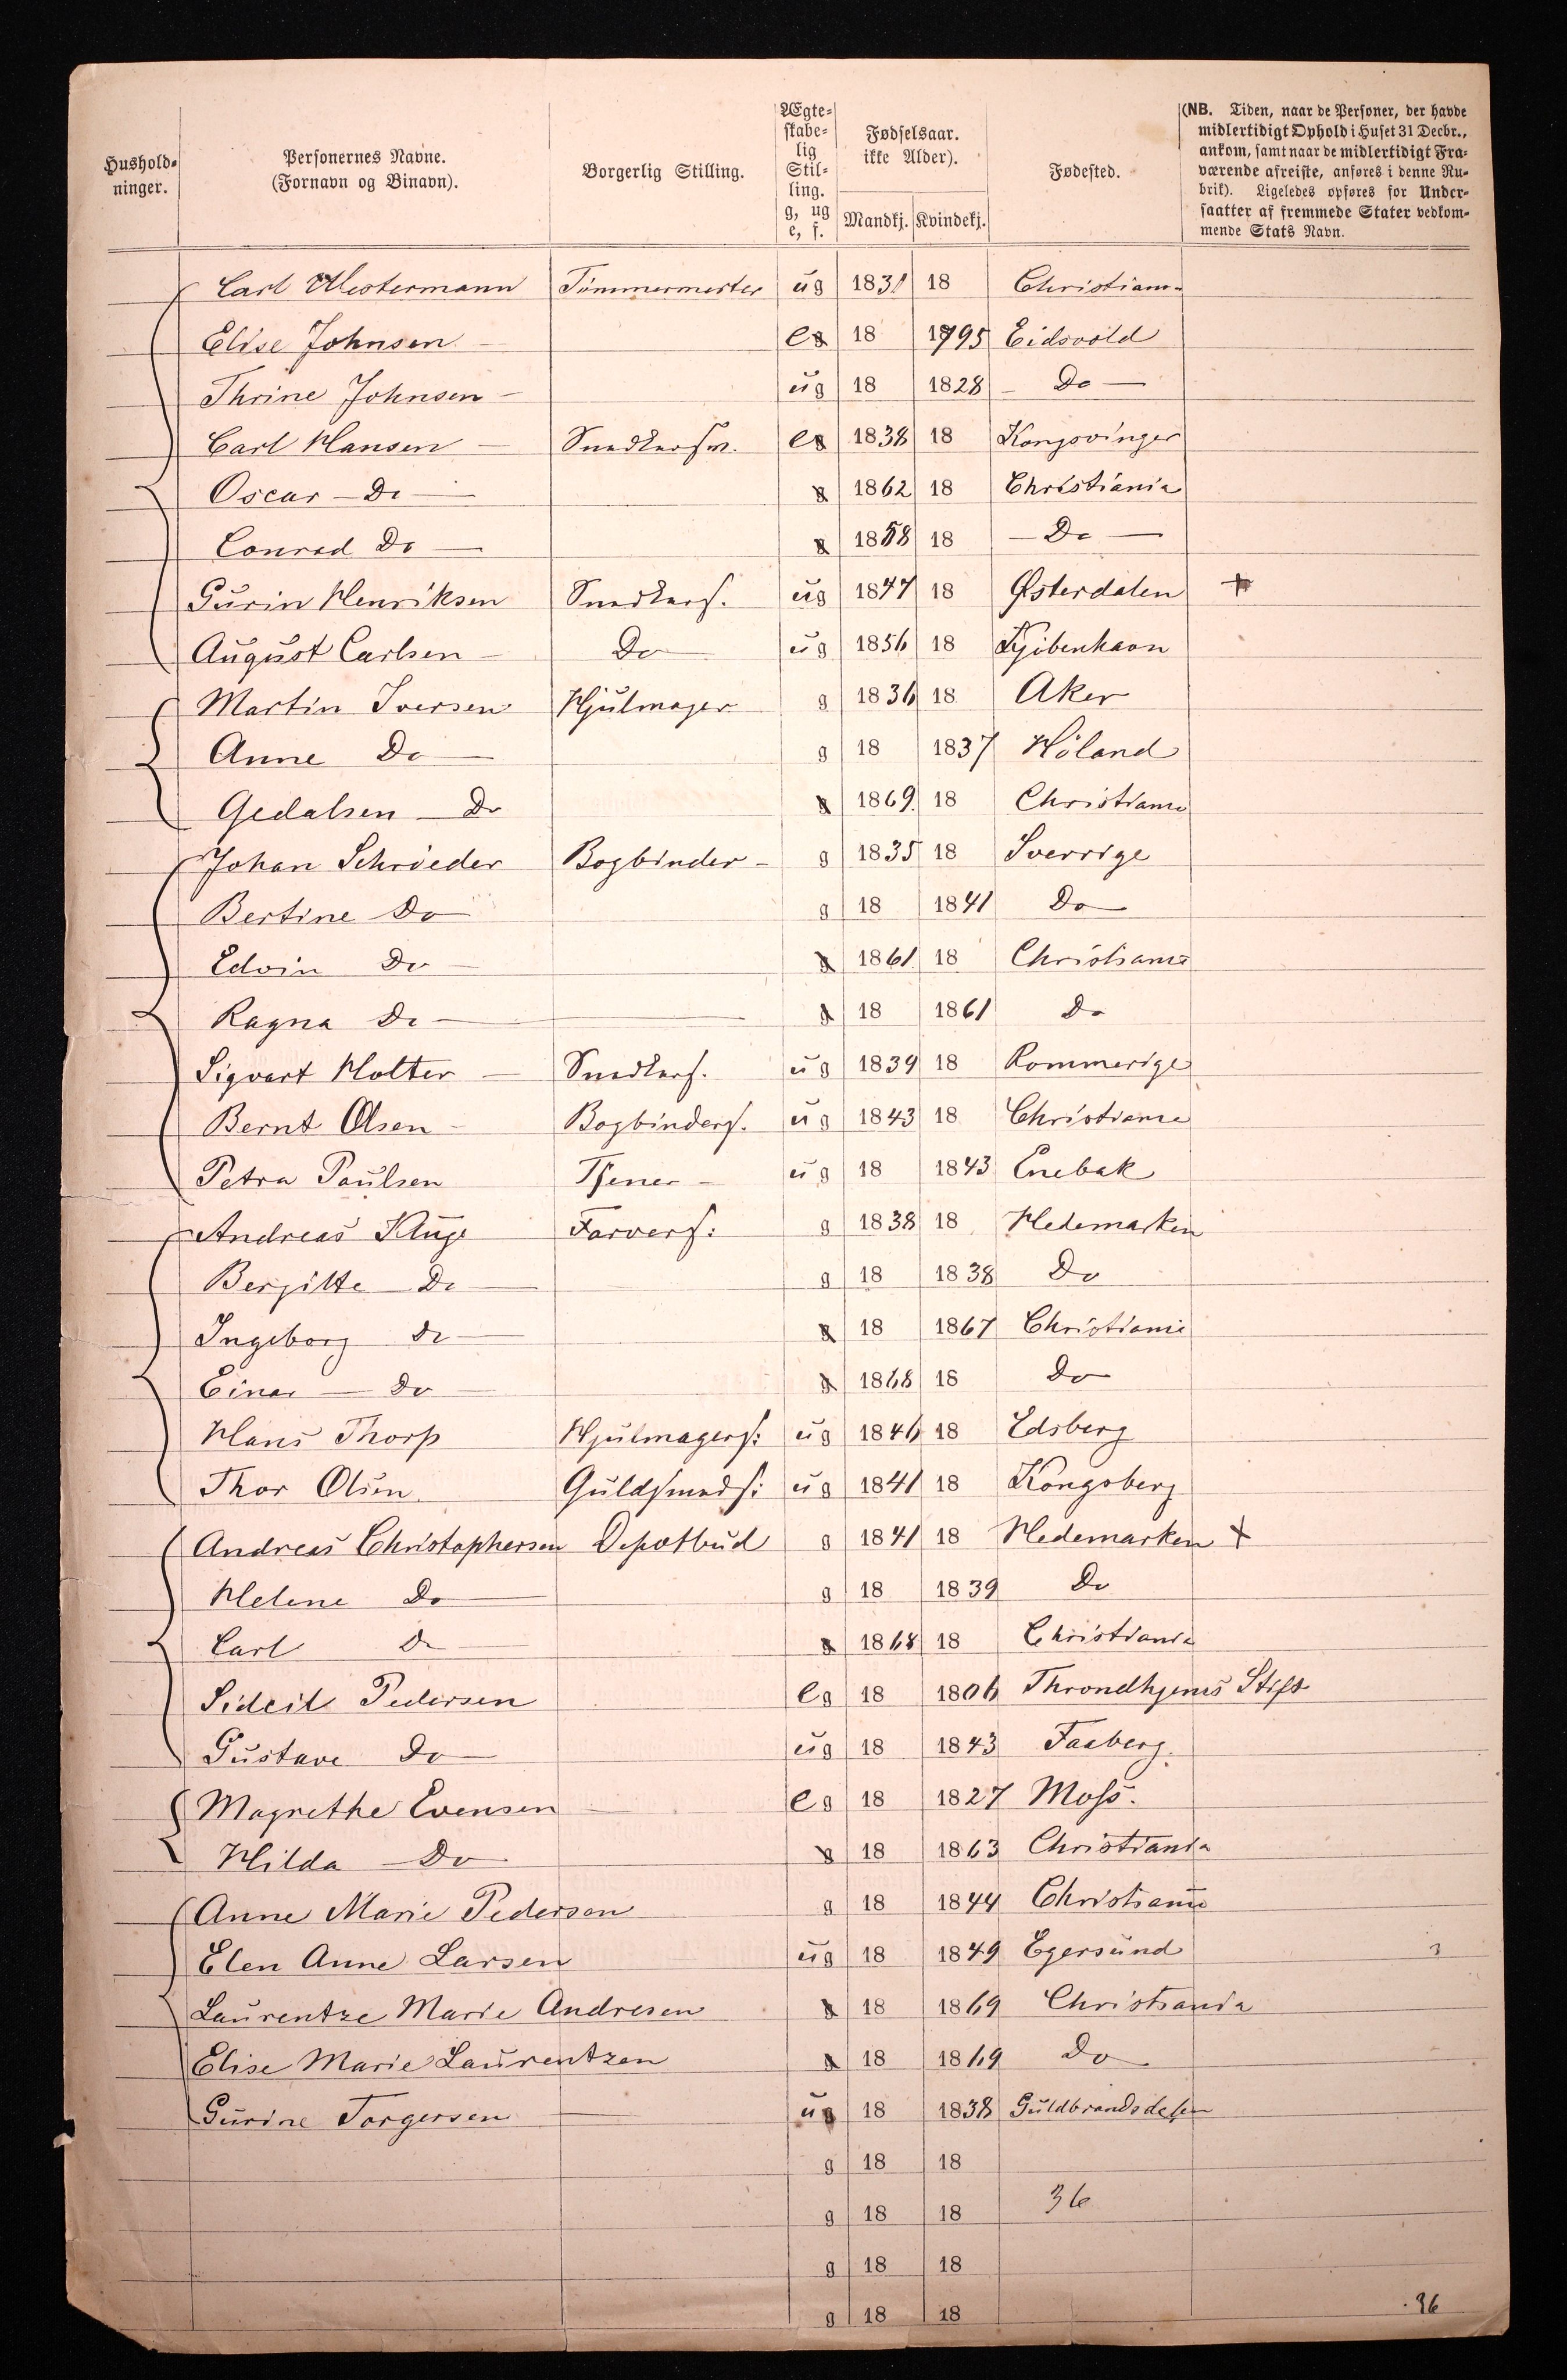 Hushold-
ninger.
Personernes Navne.
(Fornavn og Binavn).
Borgerlig Stilling.
Ægte-
skabe-
lig
Stil-
ling.
g, ug
e, f.
Fødselsaar.
ikke Alder).
Mandkj. Kvindekj.
Fødested.
(NB. Tiden, naar de Personer, der havde
midlertidigt Ophold i Huset 31 Decbr.,
ankom, samt naar de midlertidigt Fra-
værende afreiste, anføres i denne Ru-
brik). Ligeledes opføres for Under-
saatter af fremmede Stater vedkom-
mende Stats Navn.
Carl Westermann Tømmermester ug 1831 18 Christiania
Elise Johnsen e 18 1795 Eidsvold
Thrine Johnsen ug 18 1828 Do
Carl Hansen Snedkersv. e 1838 18 Kongsvinger
Oscar Do g 1862 18 Christiania
Conrad Do g 1858 18 Do
Gurin Henriksen Snedkers. ug 1847 18 Østerdalen +
August Carlsen Do ug 1856 18 Kjøbenhavn
Martin Iversen Hjulmager g 1836 18 Aker
Anne Do g 18 1837 Høland
Gedalsen Do g 1869 18 Christiania
Johan Schrøeder Bogbinder g 1835 18 Sverrige
Bertine Do g 18 1841 Do
Edvin Do g 1861 18 Christiania
Ragna Do g 18 1861 Do
Sigvart Holter Snedkers. ug 1839 18 Rommerige
Bernt Olsen Bogbinders. ug 1843 18 Christiania
Petra Paulsen Tjener ug 18 1843 Enebak
Andreas Kluge Farvers: g 1838 18 Hedemarken
Bergitte Do g 18 1838 Do
Ingeborg do g 18 1867 Christiania
Einar do g 1868 18 Do
Hans Thorp Hjulmagers: ug 1846 18 Edsberg
Thor Olsen Guldsmeds: ug 1841 18 Kongsberg
Andreas Christophersen Depotbud g 1841 18 Hedemarken +
Helene Do g 18 1839 Do
Carl Do g 1868 18 Christiania
Pedersen eg 18 1806 Throndhjems Stift
Gustave Do ug 18 1843 Faaberg.
Magrethe Evensen eg 18 1827 Moss.
Hilda Do g 18 1863 Christiania
Anne Marie Pedersen g 18 1844 Christiania
Elen Anne Larsen ug 18 1849 Egersund
Laurentze Marie Andresen g 18 1869 Christiania
Elise Marie Laurentzen g 18 1869 Do
Gurine Torgersen ug 18 1838 Guldbrandsdalen
g 18 18
g 18 18 36
g 18 18
g 18 18 36